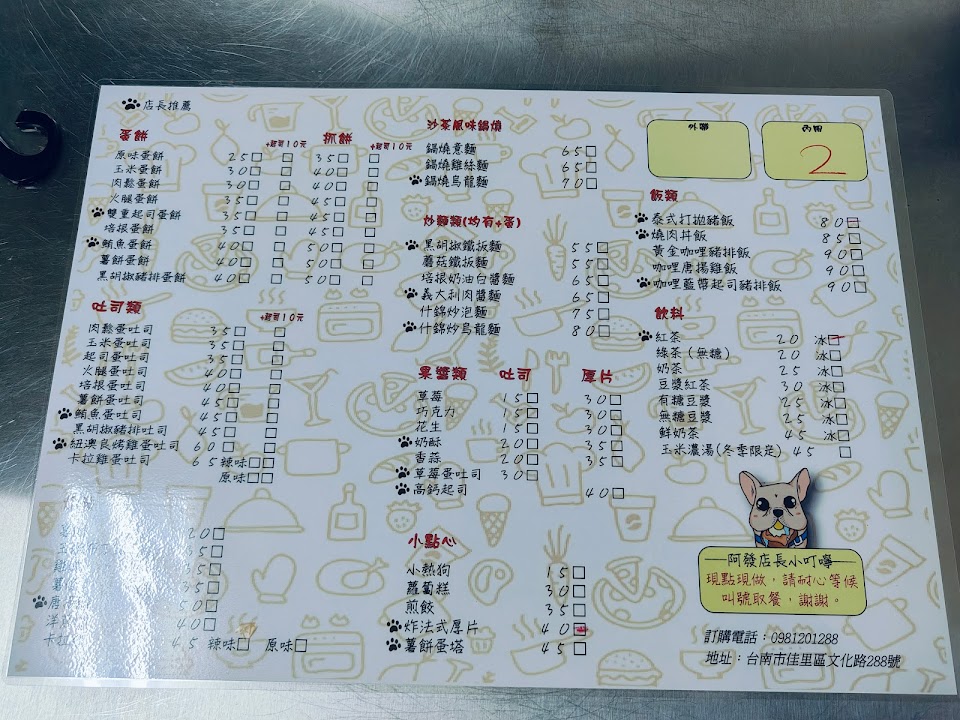 店長推薦
蛋餅 +起司10元 抓餅 +起司10元
原味蛋餅 25□ □ 35□ □
玉米蛋餅 30□ □ 40□ □
肉鬆蛋餅 30□ □ 40□ □
火腿蛋餅 35□ □ 45□ □
雙重起司蛋餅 35□ □ 45□ □
培根蛋餅 35□ □ 45□ □
鮪魚蛋餅 40□ □ 50□ □
薯餅蛋餅 40□ □ 50□ □
黑胡椒豬排蛋餅 40□ □ 50□ □
吐司類 +起司10元
肉鬆蛋吐司 35□ □
玉米蛋吐司 35□ □
起司蛋吐司 35□ □
火腿蛋吐司 40□ □
培根蛋吐司 40□ □
薯餅蛋吐司 45□ □
鮪魚蛋吐司 45□ □
黑胡椒豬排吐司 45□ □
紐澳良烤雞蛋吐司 60□ □
卡拉雞蛋吐司 65 辣味□□
原味□□
20□
35□
35□
35□
50□
40□
45 辣味□ 原味□
沙茶風味鍋燒
鍋燒意麵 65□
鍋燒雞絲麵 65□
鍋燒烏龍麵 70□
炒麵類(均有+蛋)
黑胡椒鐵板麵 55□
蘑菇鐵板麵 55□
培根奶油白醬麵 65□
義大利肉醬麵 65□
什錦炒泡麵 75□
什錦炒烏龍麵 80□
果醬類 吐司 厚片
草莓 15□ 30□
巧克力 15□ 30□
花生 15□ 30□
奶酥 20□ 35□
香蒜 20□ 35□
草莓蛋吐司 30□
高鈣起司 40□
小點心
小熱狗 15□
蘿蔔糕 30□
煎餃 35□
炸法式厚片 40□
薯餅蛋塔 45□
外帶
內用
2
飯類
泰式打拋豬飯 80□
燒肉丼飯 85□
黃金咖哩豬排飯 90□
咖哩唐揚雞飯 90□
咖哩藍帶起司豬排飯 90□
飲料
紅茶 20 冰□
綠茶(無糖) 20 冰□
奶茶 25 冰□
豆漿紅茶 30 冰□
有糖豆漿 25 冰□
無糖豆漿 25 冰□
鮮奶茶 45 冰□
玉米濃湯(冬季限定) 45 □
阿發店長小叮嚀
現點現做,請耐心等候
叫號取餐,謝謝。
訂購電話:0981201288
地址:台南市佳里區文化路288號